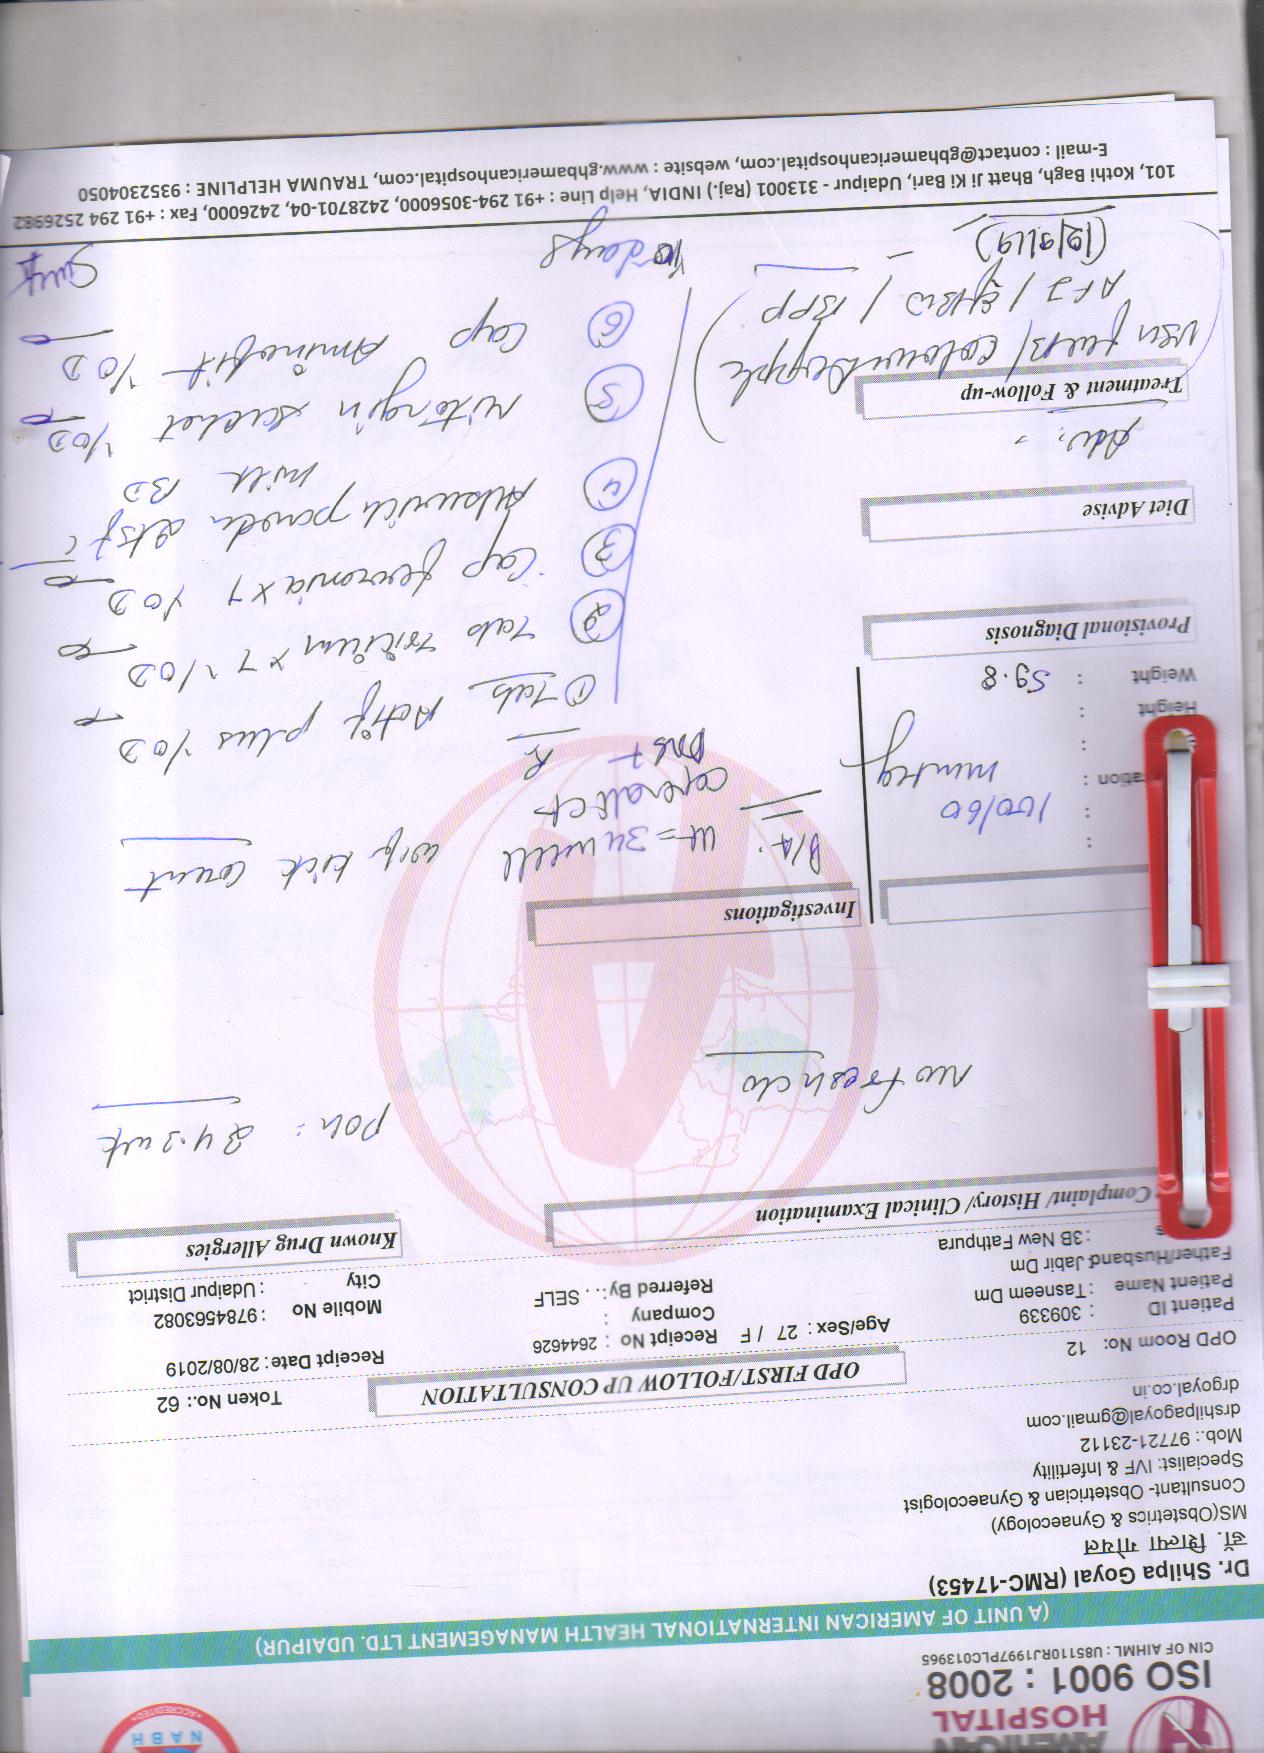 AMERICAN
HOSPITAL
ISO 9001 : 2008
CIN OF AIHML : U85110RJ1997PLC013965
NABH
ACCREDITED
(A UNIT OF AMERICAN INTERNATIONAL HEALTH MANAGEMENT LTD. UDAIPUR)
Dr. Shilpa Goyal (RMC-17453)
डॉ. शिल्पा गोयल
MS(Obstetrics & Gynaecology)
Consultant- Obstetrician & Gynaecologist
Specialist: IVF & Infertility
Mob.: 97721-23112
drshilpagoyal@gmail.com
drgoyal.co.in
OPD FIRST/FOLLOW UP CONSULTATION
Token No.: 62
OPD Room No: 12
Receipt Date: 28/08/2019
Patient ID : 309339
Age/Sex : 27 / F
Receipt No : 2644626
Patient Name : Tasneem Dm
Company :
Mobile No : 9784563082
Father/Husband Jabir Dm
Referred By : SELF
City : Udaipur District
s : 3B New Fathpura
Complaint/ History/ Clinical Examination
Known Drug Allergies
POG: 34.2 wk
No fresh c/o
Investigations
P/A: Ut = 34 week
cephalic
w/f kick count
100/60 mmHg
ration :
Height :
Weight : 59.8
Provisional Diagnosis
Diet Advise
Adv.
Treatment & Follow-up
USG / colour doppler
AFI / / BPP
(12/9/19)
Rx
① Tab plus 1 OD
② Tab x 7 1 OD
③ Cap x 7 1 OD
④ powder 2tsf c
milk BD
⑤ sachet 1 OD
⑥ Cap Aminofit 1 OD
x 10 days
101, Kothi Bagh, Bhatt Ji Ki Bari, Udaipur - 313001 (Raj.) INDIA, Help Line : +91 294-3056000, 2428701-04, 2426000, Fax : +91 294 2526982
E-mail : contact@gbhamericanhospital.com, website : www.gbhamericanhospital.com, TRAUMA HELPLINE : 9352304050